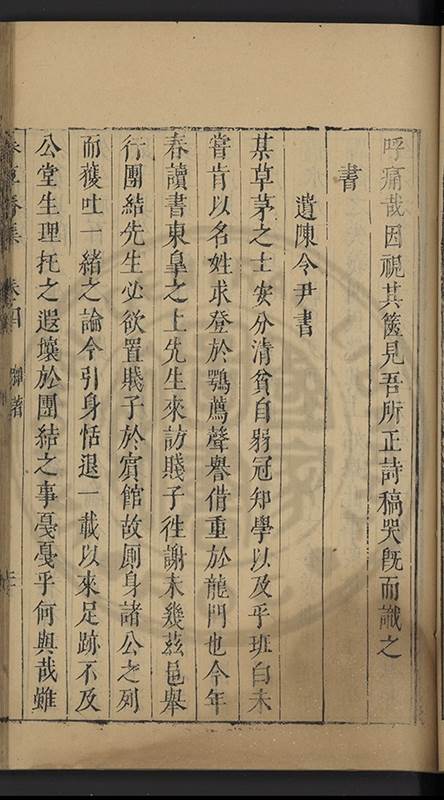 呼痛哉因視其篋見吾所正詩稿哭既而識之
書
遺陳令尹書
某草茅之士安分清貧自弱冠知學以及乎班白未
嘗肯以名姓求登於鶚薦聲譽借重於龍門也今年
春讀書東皇之上先生來訪賤子徃謝未幾茲邑舉
行團結先生必欲置賤子於賓館故厠身諸公之列
而獲吐一緒之論今引身恬退一載以來足跡不及
公堂生理托之遐壤於團結之事戞戞乎何與哉雖
卷四
雜著
三